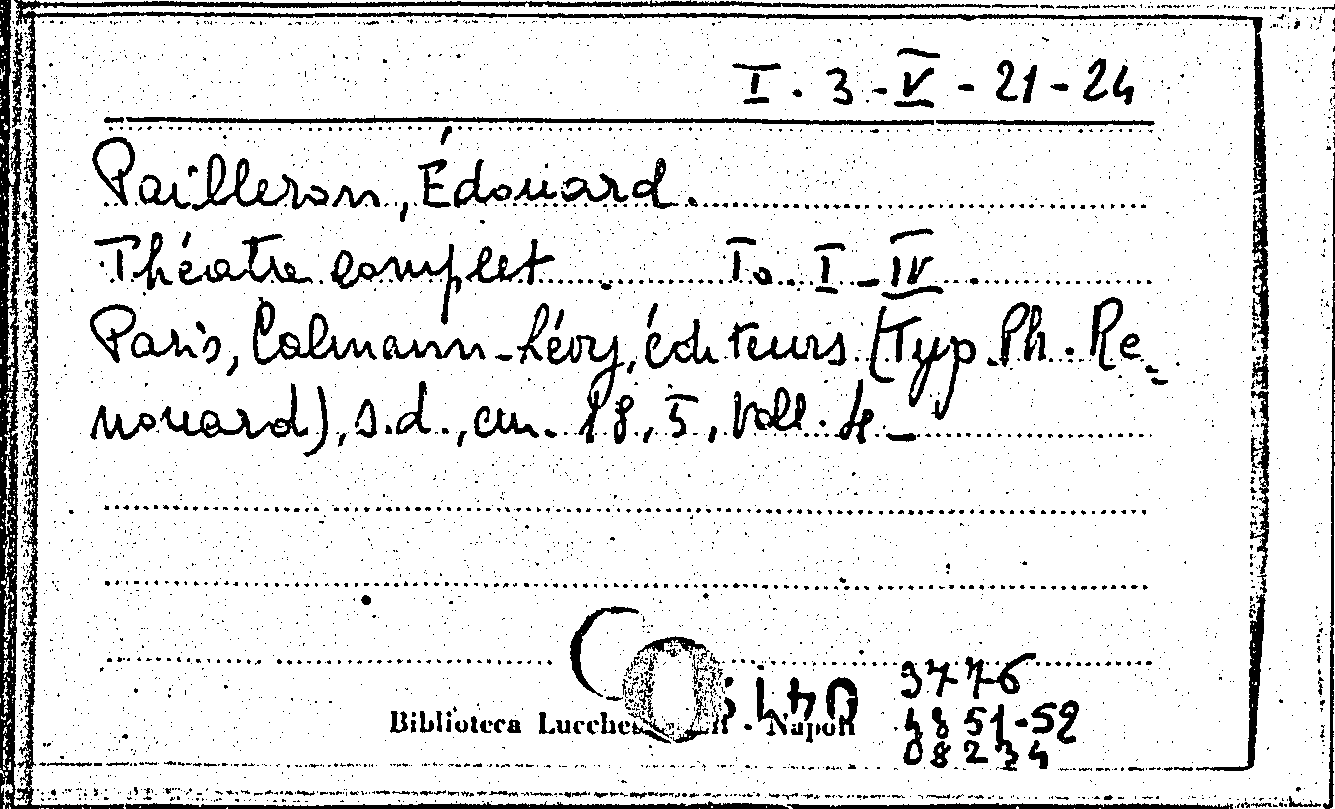 I. 3 - IV - 21 - 24
Pailleron, Édouard.
Théatre complet. To. I - IV.
Paris, Calmann-Lévy, éditeurs (Typ. Ph. Re-
nouard), s.d., cm. 18,5, Voll. 4 -
3776
Biblioteca - Napoli
4851-52
08234